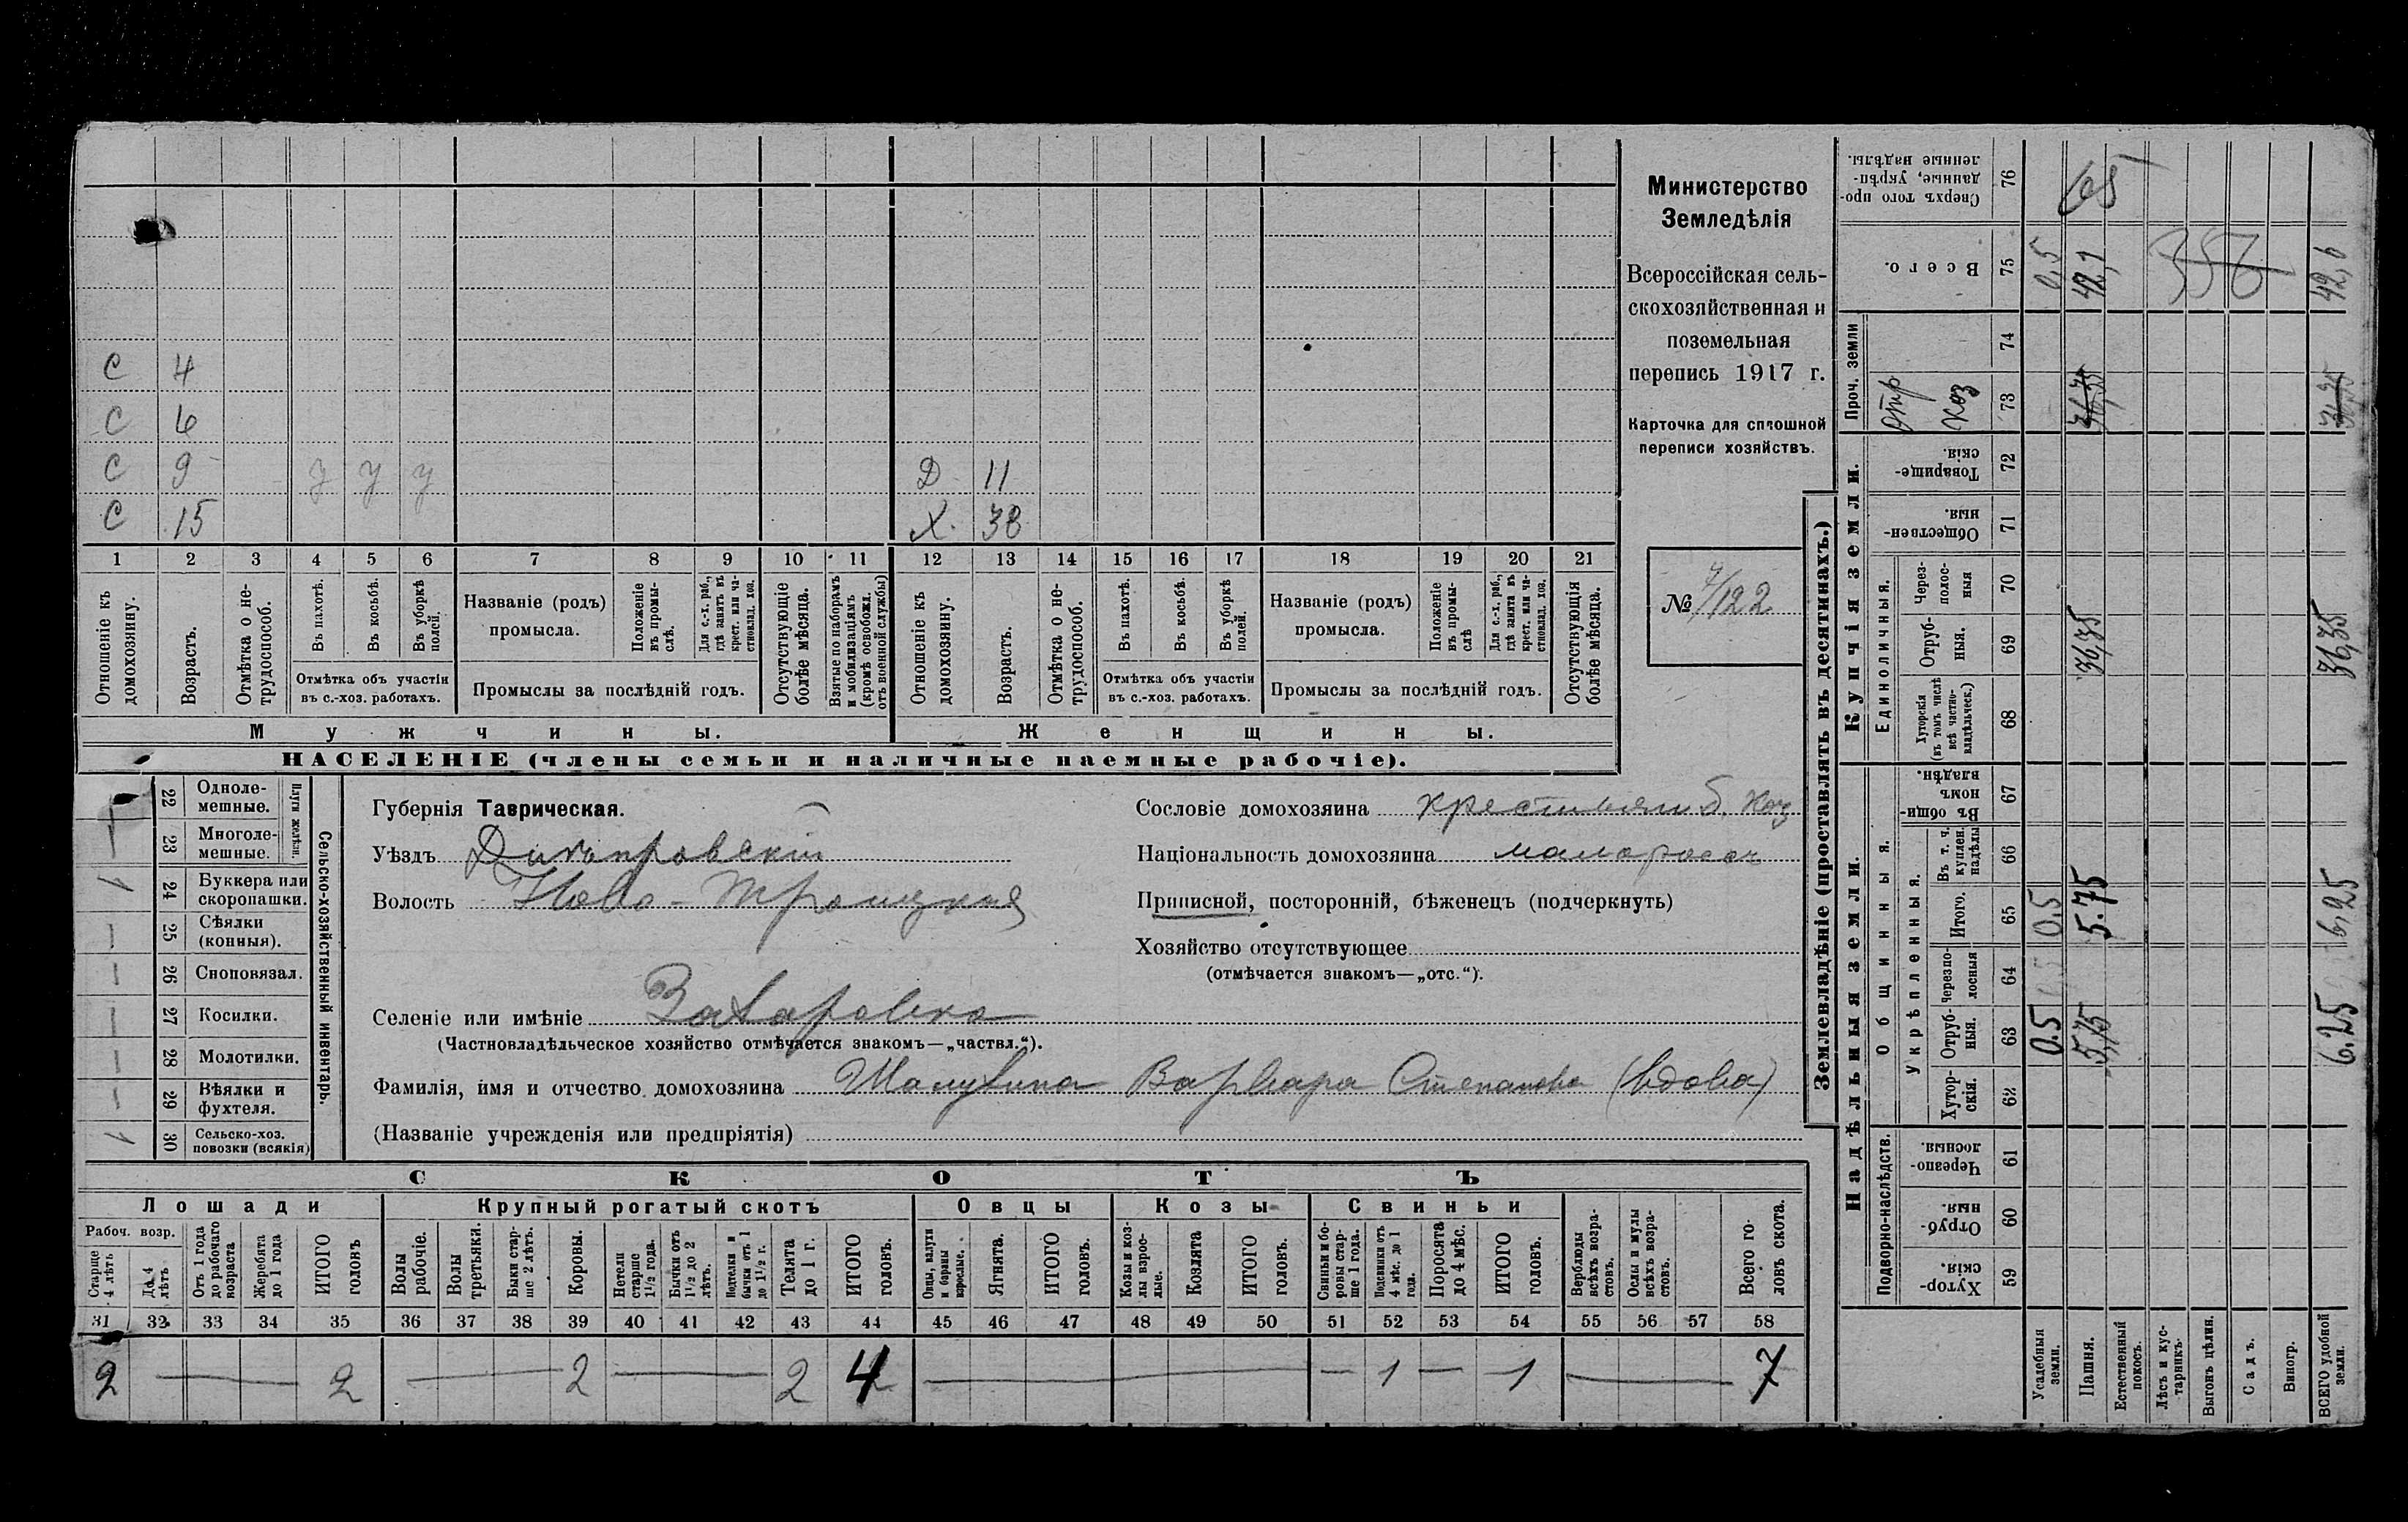 Министерство
Земледѣлія
Всероссійская сель-
скохозяйственная и
поземельная
перепись 1917 г.
Карточка для сплошной
переписи хозяйствъ.
№ 7/122
С 4
С 6
С 9 У У У Д 11
С 15 Х. 38
1 2 3 4 5 6 7 8 9 10 11 12 13 14 15 16 17 18 19 20 21
Отношеніе къ домохозяину.
Возрастъ.
Отмѣтка о не-
трудоспособ.
Въ пахотѣ.
Въ косьбѣ.
Въ уборкѣ полей.
Отмѣтка объ участіи
въ с.-хоз. работахъ.
Названіе (родъ)
промысла.
Положеніе
въ промы-
слѣ.
Для с.-х. раб.,
гдѣ занятъ въ
крест. или ча-
стновлад. хоз.
Промыслы за послѣдній годъ.
Отсутствующіе
болѣе мѣсяца.
Взятые по наборамъ
и мобилизаціямъ
(кромѣ освобожд.
отъ военной службы)
Отношеніе къ
домохозяину.
Возрастъ.
Отмѣтка о не-
трудоспособ.
Въ пахотѣ.
Въ косьбѣ.
Въ уборкѣ
полей.
Отмѣтка объ участіи
въ с.-хоз. работахъ.
Названіе (родъ)
промысла.
Положеніе
въ промы-
слѣ
Для с.-х. раб.,
гдѣ занята въ
крест. или ча-
стновлад. хоз.
Промыслы за послѣдній годъ.
Отсутствующія
болѣе мѣсяца.
Мужчины.
Женщины.
НАСЕЛЕНІЕ (члены семьи и наличные наемные рабочіе).
22 Одноле-
мешные.
23 Многоле-
мешные.
Плуги желѣзн.
1 24 Буккера или
скоропашки.
— 25 Сѣялки
(конныя).
— 26 Сноповязал.
— 27 Косилки.
— 28 Молотилки.
— 29 Вѣялки и
фухтеля.
1 30 Сельско-хоз.
повозки (всякія)
Сельско-хозяйственный инвентарь.
Губернія Таврическая.
Уѣздъ Днѣпровскій
Волость Ново-Троицкая
Селеніе или имѣніе Захаровка
(Частновладѣльческое хозяйство отмѣчается знакомъ—„частвл.“).
Фамилія, имя и отчество домохозяина Варвара Степановна (вдова)
(Названіе учрежденія или предпріятія)
Сословіе домохозяина крестьянин
Національность домохозяина малоросс
Приписной, посторонній, бѣженецъ (подчеркнуть)
Хозяйство отсутствующее
(отмѣчается знакомъ—„отс.“).
СКОТЪ
Лошади
Крупный рогатый скотъ
Овцы
Козы
Свиньи
Рабоч. возр.
Старше
4 лѣтъ
До 4
лѣтъ
Отъ 1 года
до рабочаго
возраста
Жеребята
до 1 года
ИТОГО
головъ
Волы
рабочіе.
Волы
третьяки.
Быки стар-
ше 2 лѣтъ.
Коровы.
Нетели
старше
1½ года.
Бычки отъ
1½ до 2
лѣтъ.
Подтелки и
бычки отъ 1
до 1½ г.
Телята
до 1 г.
ИТОГО
головъ.
Овцы, валухи
и бараны
взрослые.
Ягнята.
ИТОГО
головъ.
Козы и коз-
лы взрос-
лые.
Козлята
ИТОГО
головъ.
Свиньи и бо-
ровы стар-
ше 1 года.
Подсвинки отъ
4 мѣс. до 1
года.
Поросята
до 4 мѣс.
ИТОГО
головъ.
Верблюды
всѣхъ возра-
стовъ.
Ослы и мулы
всѣхъ возра-
стовъ.
Всего го-
ловъ скота.
31 32 33 34 35 36 37 38 39 40 41 42 43 44 45 46 47 48 49 50 51 52 53 54 55 56 57 58
2 — 2 — 2 — 2 4 — — 1 — 1 — 7
Землевладѣніе (проставлять въ десятинахъ.)
Надѣльныя земли.
Купчія земли.
Проч. земли
Подворно-наслѣдств.
Общинныя.
Укрѣпленныя.
Единоличныя.
Сверхъ того про-
данные, укрѣп-
ленные надѣлы.
76
Всего.
75 0,5 42,1 356 42,6
74
73 отр 36,35 36,35
Товарище-
скія.
72
Обществен-
ныя.
71
Через-
полос-
ныя
70
Отруб-
ныя.
69 36,35 36,35
Хуторскія
(въ томъ числѣ
всѣ частно-
владѣльческ.)
68
Въ общи-
номъ
владѣн.
67
Въ т. ч.
куплен.
надѣлы
66
Итого.
65 0.5 5.75 6,25
Черезпо-
лосныя
64
Отруб-
ныя.
63 0.5 5,75 6.25
Хутор-
скія.
62
Черезпо-
лосныя.
61
Отруб-
ныя.
60
Хутор-
скія.
59
Усадебныя
земли.
Пашня.
Естественный
покосъ.
Лѣсъ и кус-
тарникъ.
Выгонъ цѣлин.
Садъ.
Виногр.
ВСЕГО удобной
земли.